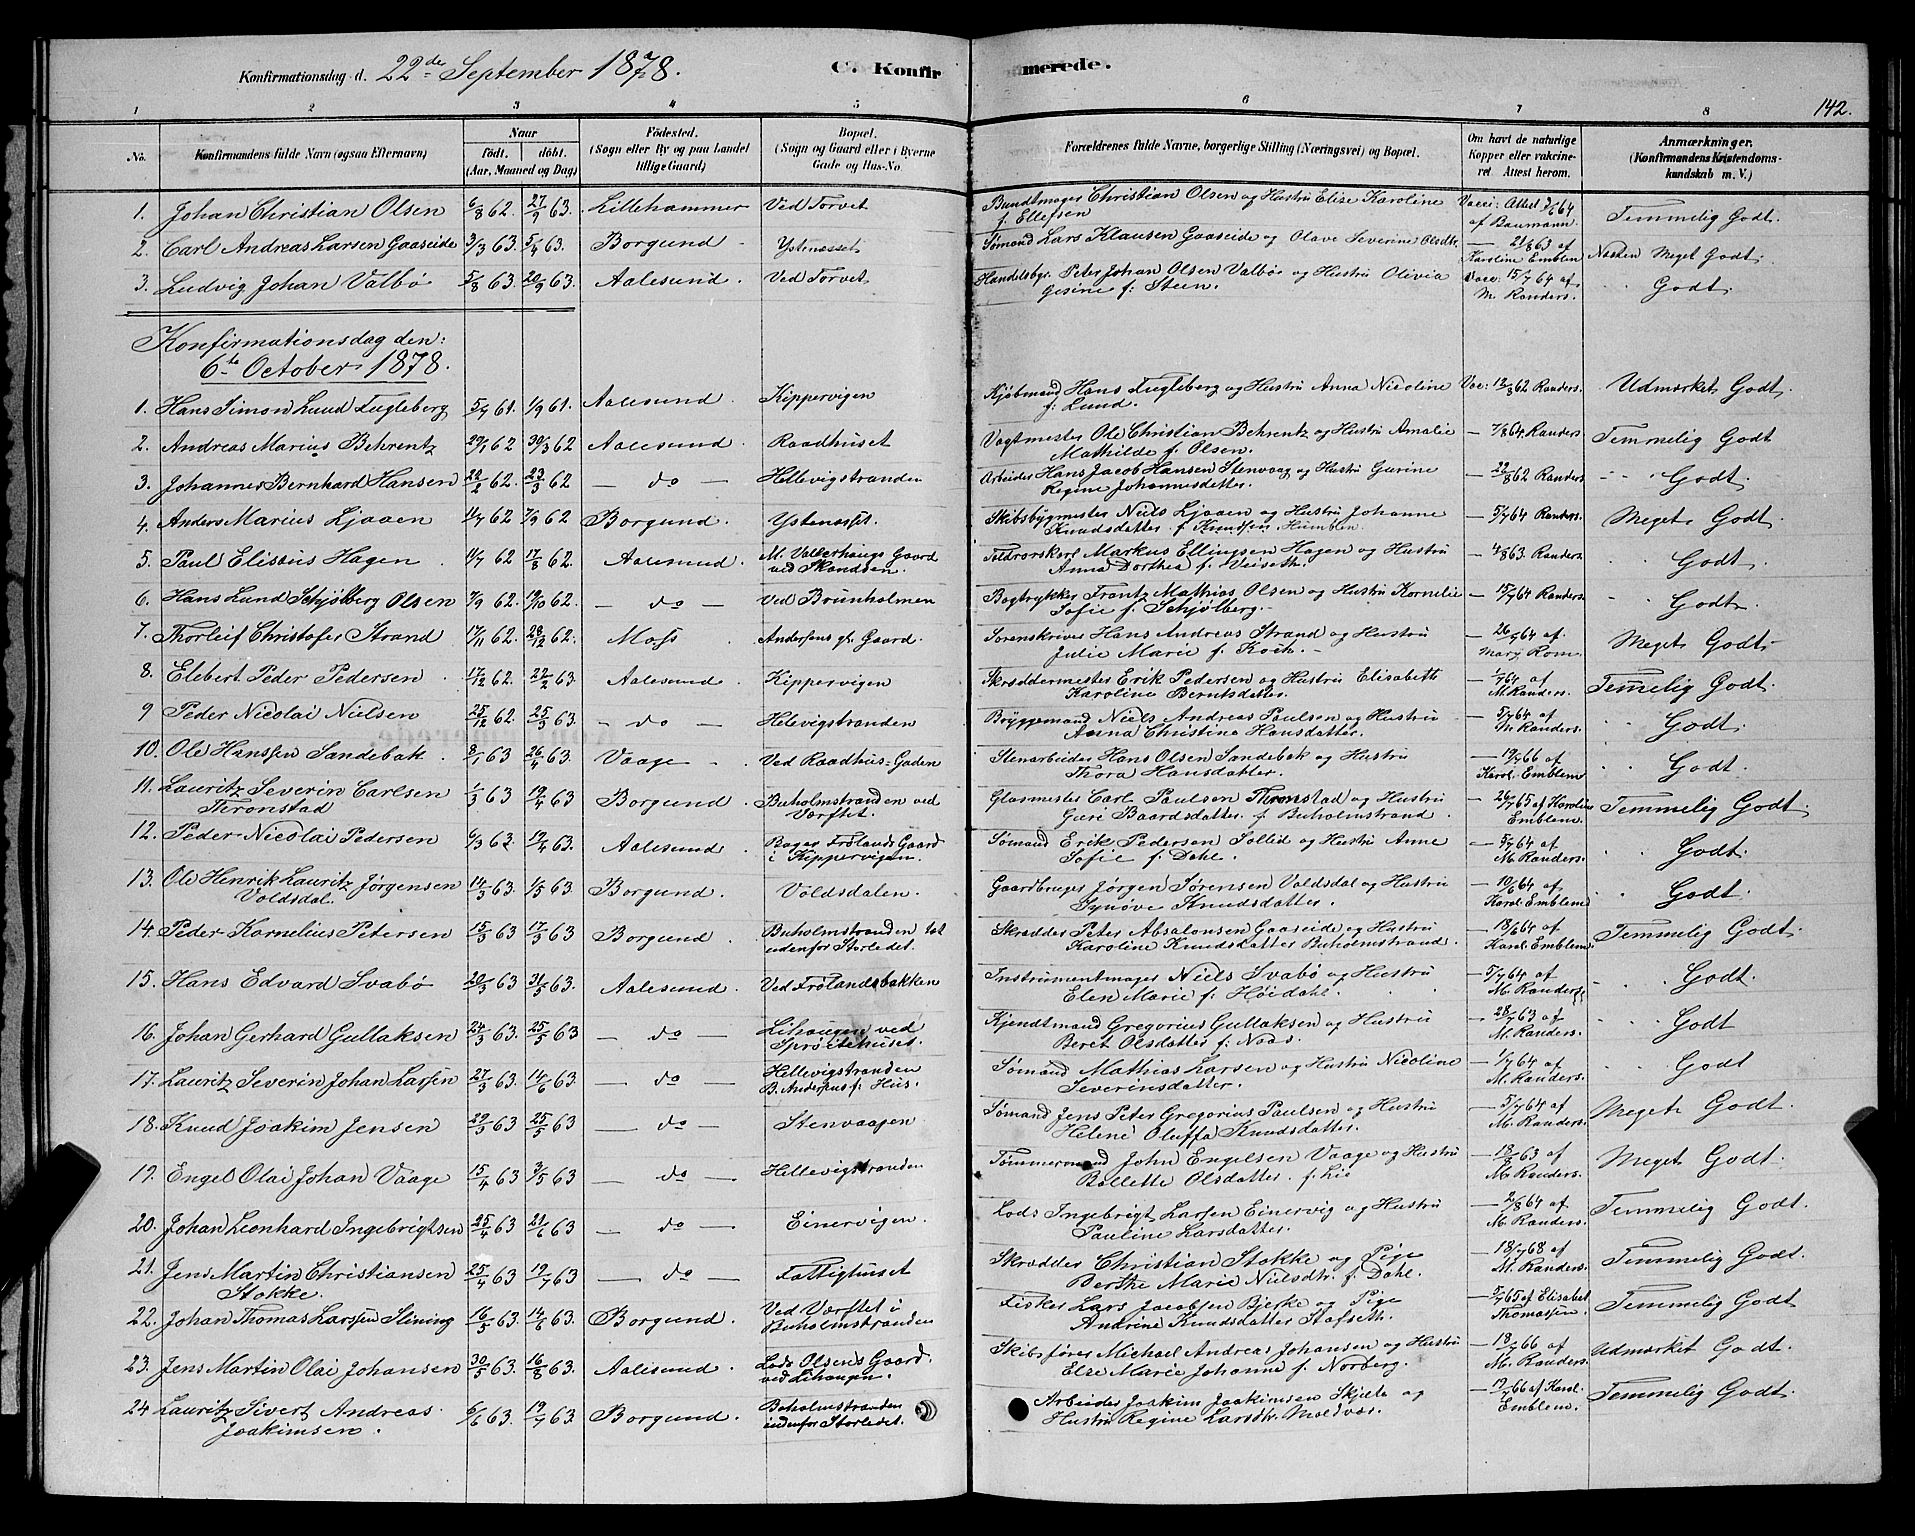 Konfirmationsdag d. 22de September 1878. C. Konfirmerede. 142.
1 2 3 4 5 6 7 8
No. Konfirmandens fulde Navn (ogsaa Efternavn) Naar født, døbt. (Aar, Maaned og Dag) Fødested. (Sogn eller By og paa Landet tillige Gaard) Bopæl. (Sogn og Gaard eller i Byerne Gade og Hus-No. Forældrenes fulde Navne, borgerlige Stilling (Næringsvei) og Bopæl. Om havt de naturlige Kopper eller vakcineret Attest herom. Anmærkninger. (Konfirmandens Kristendomskundskab m. V.)
1. Johan Christian Olsen 6/8 62. 27/9 63. Lillehammer Ved Torvet Bundtmager Christian Olsen og Hustru Elise Karoline f. Ellefsen Vacc: Attest 64 af Baumann. Temmelig Godt.
2. Carl Andreas Larsen Gaaseide 3/3 63. 5/4 63. Borgund Ystenæsset Sømand Lars Klausen Gaaseide og Olave Severine Olsdtr. — 21/8 63 af Karoline Emblem Næsten Meget Godt.
3. Ludvig Johan Valbø 5/8 63. 20/9 63. Aalesund. Ved Torvet Handelsbgr. Peter Johan Olsen Valbøe og Hustru Olivia Gesine f. Steen. Vacc: 15/7 64 af M. Randers. Godt.
Konfirmationsdag den:
6te October 1878.
1. Hans Simon Lund Fugleberg 5/7 61. 1/9 61. Aalesund Kippervigen Kjøbmand Hans Fugleberg og Hustru Anna Nicoline f. Lund. Vac: 12/8 62 Randers. Udmærket Godt.
2. Andreas Marius Behrentz 29/1 62 30/3 62 Aalesund Raadhuset Vagtmester Ole Christian Behrentz og Hustru Amalie Mathilde f. Olsen. — 7/8 64. Randers. Temmelig Godt
3. Johannes Bernhard Hansen 22/2 62. 23/3 62 — do — Hellevigstranden Arbeider Hans Jacob Hansen Stenvaag og Hustru Gurine Regine Johannesdatter. — 22/8 62 Randers Godt.
4. Anders Marius Ljaaen 11/7 62 7/9 62 Borgund. Ystenæsset. Skibsbygmester Niels Ljaaen og Hustru Johanne Knudsdatter f. Knudsen Humblen — 5/7 64 Randers. Meget Godt.
5. Paul Elisæus Hagen 11/7 62 17/8 62. Aalesund. M. Vallerhaugs Gaard ved Skandsen. Markus Ellingsen Hagen og Hustru Anna Dorthea f. Veiseth. — 4/8 63. Randers Godt.
6. Hans Lund Schjølberg Olsen 7/9 62. 19/10 62. — do — Ved Brunholmen Bogtrykker Frantz Mathias Olsen og Hustru Kornelie Sofie f. Schjølberg. — 15/7 64 Randers. Godt
7. Thorleif Christofer Strand 17/11 62. 28/12 62. Moss Andersens gl. Gaard. Sorenskriver Hans Andreas Strand og Hustru Julie Marie f. Koch. — 26/7 64 af Mary Rom Meget Godt.
8. Elebert Peder Pedersen 17/12 62. 22/2 63. Aalesund. Kippervigen Skræddermester Erik Pedersen og Hustru Elisabeth Karoline Berntsdatter. — 1/7 64 af M. Randers. Temmelig Godt.
9 Peder Nicolai Nielsen 25/12 62. 25/3 63. — do — Helevigstranden Bryggemand Niels Andreas Paulsen og Hustru Anna Christine Hansdatter. — 5/7 64 af M. Randers. Godt.
10. Ole Hanssen Sandebak 8/1 63 26/4 63. Vaage Ved Raadhus-Gaden Stenarbeider Hans Olsen Sandebak og Hustru Thora Hansdatter. — 19/7 66 af Karol. Emblem Godt.
11. Lauritz Severin Carlsen Thronstad 1/3 63 19/4 63 Borgund. Buholmstranden ved Værftet. Glasmester Carl Paulsen Thronstad og Hustru Guri Baardsdatter f. Buholmstrand. — 26/7 65 af Karoline Emblem. Temmelig Godt.
12. Peder Nicolai Pedersen 6/3 62. 19/4 63. Aalesund. Bager Frølands Gaard i Kippervigen. Sømand Erik Pedersen Sollid og Hustru Anne Sofie f. Dahl. — 5/7 64 af M. Randers. Godt.
13. Ole Henrik Lauritz Jørgensen Voldsdal. 14/3 63. 1/5 63. Borgund. Voldsdalen. Gaardbruger Jørgen Sørensen Voldsdal og Hustru Synøve Knudsdatter. — 10/6 64 af Karol. Emblem Godt.
14. Peder Kornelius Petersen 15/3 63 17/5 63 Borgund. Buholmstranden udenfor Storledet. Skrædder Peter Absalonsen Gaaseide og Hustru Karoline Knudsdatter Buholmstrand. — 18/6 64 af Karol. Emblem. Temmelig Godt.
15. Hans Edvard Svabø 20/3 63 31/5 63. Aalesund. Ved Frølandsbakken Instrumentmager Niels Svabø og Hustru Elen Marie f. Høidahl. — 5/7 64 af M. Randers Godt.
16. Johan Gerhard Gullaksen 24/3 63. 25/5 63 — do — Lihaugen ved Sprøitehuset. Kjendtmand Gregorius Gullaksen og Hustru Beret Olsdatter f. Nøds. — 28/7 63 af M. Randers. Godt
17. Lauritz Severin Johan Larsen 27/3 63. 14/6 63. — do — Hellevigstranden B. Andersens f. Hus. Sømand Mathias Larsen og Hustru Nicoline Severinsdatter. — 1/7 64 af M. Randers. Godt
18. Knud Joakim Jensen 29/3 63 25/5 63 — do — Stenvaagen Sømand Jens Peter Gregorius Paulsen og Hustru Helene Oluffa Knudsdatter. — 5/7 64 af M. Randers. Meget Godt.
19. Engel Olai Johan Vaage 15/4 63 3/5 63 — do — Hellevigstranden Tømmermand John Engelsen Vaage og Hustru Bollette Olsdatter. f. Lie — 18/8 63 af M. Randers Meget Godt.
20. Johan Leonhard Ingebrigtsen 25/4 63 21/6 63 — do — Einervigen. Lods Ingebrigt Larsen Einervig og Hustru Pauline Larsdatter. — 2/8 64 af M. Randers. Temmelig Godt.
21. Jens Martin Christiansen Stokke. 25/4 63 12/7 63 — do — Fattighuset Skrædder Christian Stokke og Pige Berthe Marie Nielsdtr. f. Dahl. — 18/7 68 af M. Randers Temmelig Godt.
22. Johan Thomas Larsen Slining 16/5 63. 14/6 63. Borgund. Ved Værftet i Buholmstranden Fisker Lars Jacobsen Bjerke og Pige Andrine Knudsdatter Stafseth. — 5/7 65 af Elisabet Thomassen. Temmelig Godt
23. Jens Martin Olai Johansen 30/5 63. 16/8 63. Aalesund. Lods Olsens Gaard. ved Lihaugen. Skibsfører Michael Andreas Johansen og Hustru Else Marie Johanne f. Norberg. — 18/7 66 af M. Randers. Udmærket Godt.
24 Lauritz Sivert Andreas Joakimsen. 6/6 63. 19/7 63. Borgund. Boholmstranden indenfor Storledet. Arbeider Joakim Joakimsen Skjelte og Hustru Regine Larsdtr. Moldvær. — 19/7 66 af Karol. Emblem. Temmelig Godt.